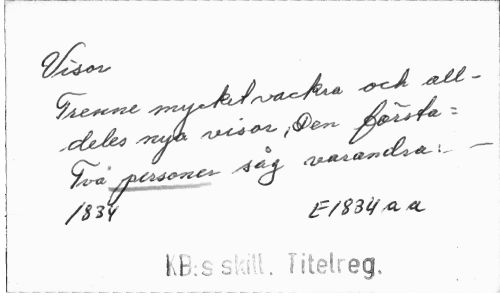 Visor
Trenne mycket vackra och all-
deles nya visor, Den första =
Två personer såg varandra: -
1834 E1834 a a
KB:s skill. Titelreg.